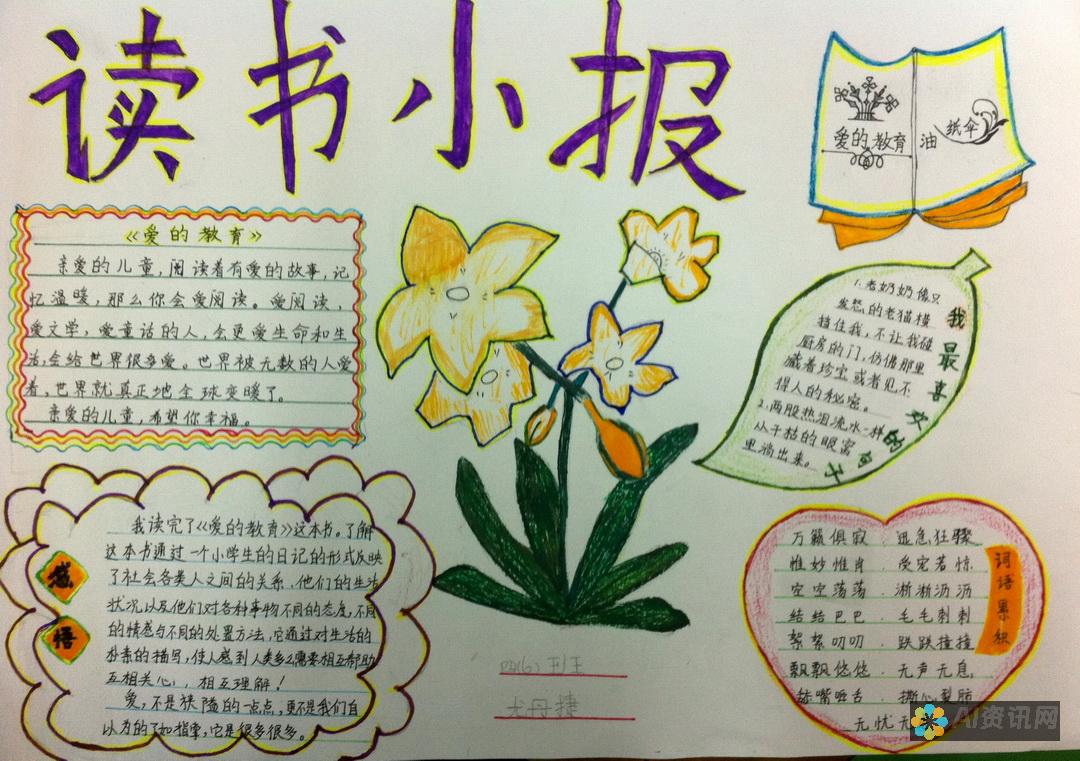 读书小报
爱的教育
油纸伞
《爱的教育》
亲爱的儿童，阅读着有爱的故事，记
忆温暖，那么你会爱阅读。爱阅读，
爱文学，爱童话的人，会更爱生命和生
活，会给世界很多爱。世界被无数的人爱
着，世界就真正地全球变暖了。
亲爱的儿童，希望你幸福。
我最喜欢的句子
1.老奶奶像只
发怒的老猫横
挡住我，不让我碰
厨房的门，仿佛那里
藏着珍宝或者见不
得人的秘密。
2.两股热泪流水一样
从干枯的眼窝
里淌出来。
感悟
我读完了《爱的教育》这本书。了解
这本书通过一个小学生的日记的形式反映
了社会各类人之间的关系，他们的生活
状况以及他们对各种事物不同的态度，不同
的情感与不同的处置方法，它通过对生活的
朴素的描写，使人感到人类多么需要相互帮助
互相关心，相互理解！
爱，不是狭隘的一点点，更不是我们自
以为的了如指掌，它是很多很多。
词语累积
万籁俱寂．迅急狂骤
惟妙惟肖．受宠若惊
空空落落．淅淅沥沥
结结巴巴．毛毛刺刺
絮絮叨叨．跌跌撞撞
飘飘悠悠．无声无息
舔嘴咂舌．撕心裂肺
无忧无
四(6)班
捷
AI资讯网